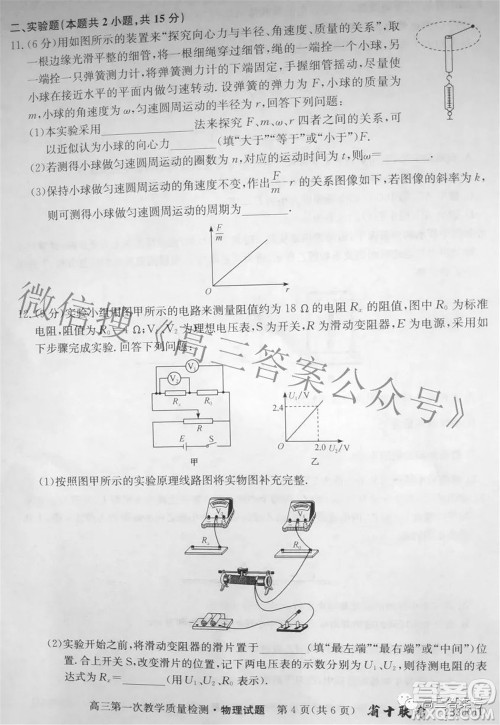 二、实验题(本题共2小题,共15分)
11.(6分)用如图所示的装置来“探究向心力与半径、角速度、质量的关系”,取
一根边缘光滑平整的细管,将一根细绳穿过细管,绳的一端拴一个小球,另
一端拴一只弹簧测力计,将弹簧测力计的下端固定,手握细管摇动,尽量使
小球在接近水平的平面内做匀速转动.设弹簧测力计的示数为F,小球的质量为
m,小球的角速度为ω,匀速圆周运动的半径为r,回答下列问题:
(1)本实验采用________法来探究F、m、ω、r四者之间的关系,可
以近似认为小球的向心力________(填“大于”“等于”或“小于”)F.
(2)若测得小球做匀速圆周运动的圈数为n,对应的运动时间为t,则ω=________.
(3)保持小球做匀速圆周运动的角速度不变,作出F/m-r的关系图像如下,若图像的斜率为k,
则可测得小球做匀速圆周运动的周期为________.
F/m
O r
12.(9分)实验小组用图甲所示的电路来测量阻值约为18 Ω的电阻Rx的阻值,图中R0为标准
电阻,阻值为R0=  Ω;V1、V2为理想电压表,S为开关,R为滑动变阻器,E为电源,采用如
下步骤完成实验.回答下列问题:
V1
V2
Rx R0
R
E S
甲
U1/V
2.4
O 2.0 U2/V
乙
(1)按照图甲所示的实验原理线路图将实物图补充完整.
V2 V1
R0 Rx
(2)实验开始之前,将滑动变阻器的滑片置于________(填“最左端”“最右端”或“中间”)位
置.合上开关S,改变滑片的位置,记下两电压表的示数分别为U1、U2,则待测电阻的表
达式为Rx=________(用U1、U2、R0表示).
高三第一次教学质量检测·物理试题 第4页(共6页) 省十联考
微信搜《高三答案公众号》